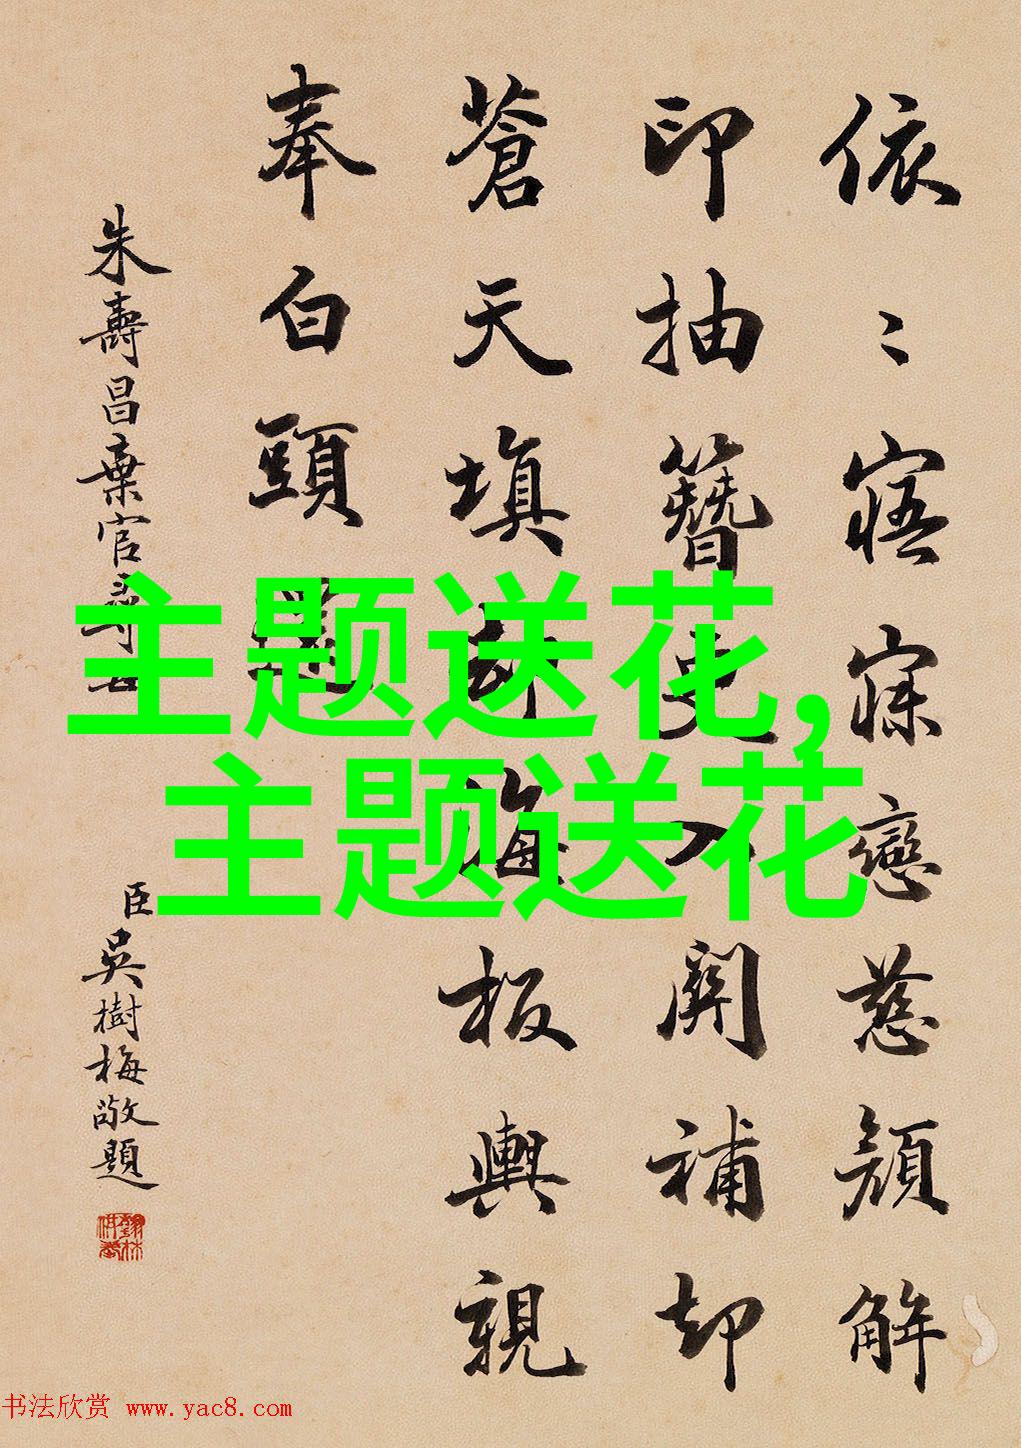 依〻寤寐戀慈顏解
印抽簪更入關補却
蒼天填却海板輿親
奉白頭還
朱壽昌棄官尋母
臣吳樹梅敬題
主题送花,
主题送花
书法欣赏 www.yac8.com